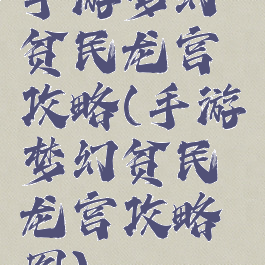 手游梦幻
贫民龙宫
攻略(手游
梦幻贫民
龙宫攻略
图)